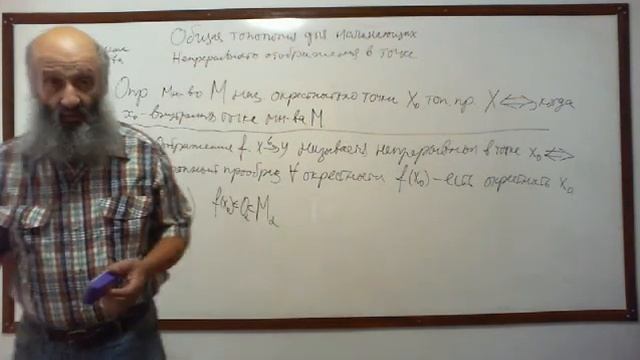 Общая топология для начинающих
Непрерывность отображения в точке
Опр мн-во M наз окрестностью точки x₀ топ. пр. X ⟺ когда
x₀ - внутренняя точка мн-ва M
отображение f: X → Y называется непрерывным в точке x₀ ⟺
прообраз ∀ окрестности f(x₀) - есть окрестность x₀
f(x₀)